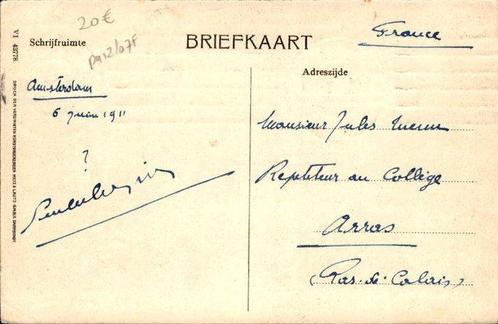 20€
Schrijfruimte
BRIEFKAART
France
Adreszijde
V I 43278
Amsterdam
6 juin 1911
?
Monsieur Jules
Repetiteur au Collège
Arras
(Pas-de-Calais)